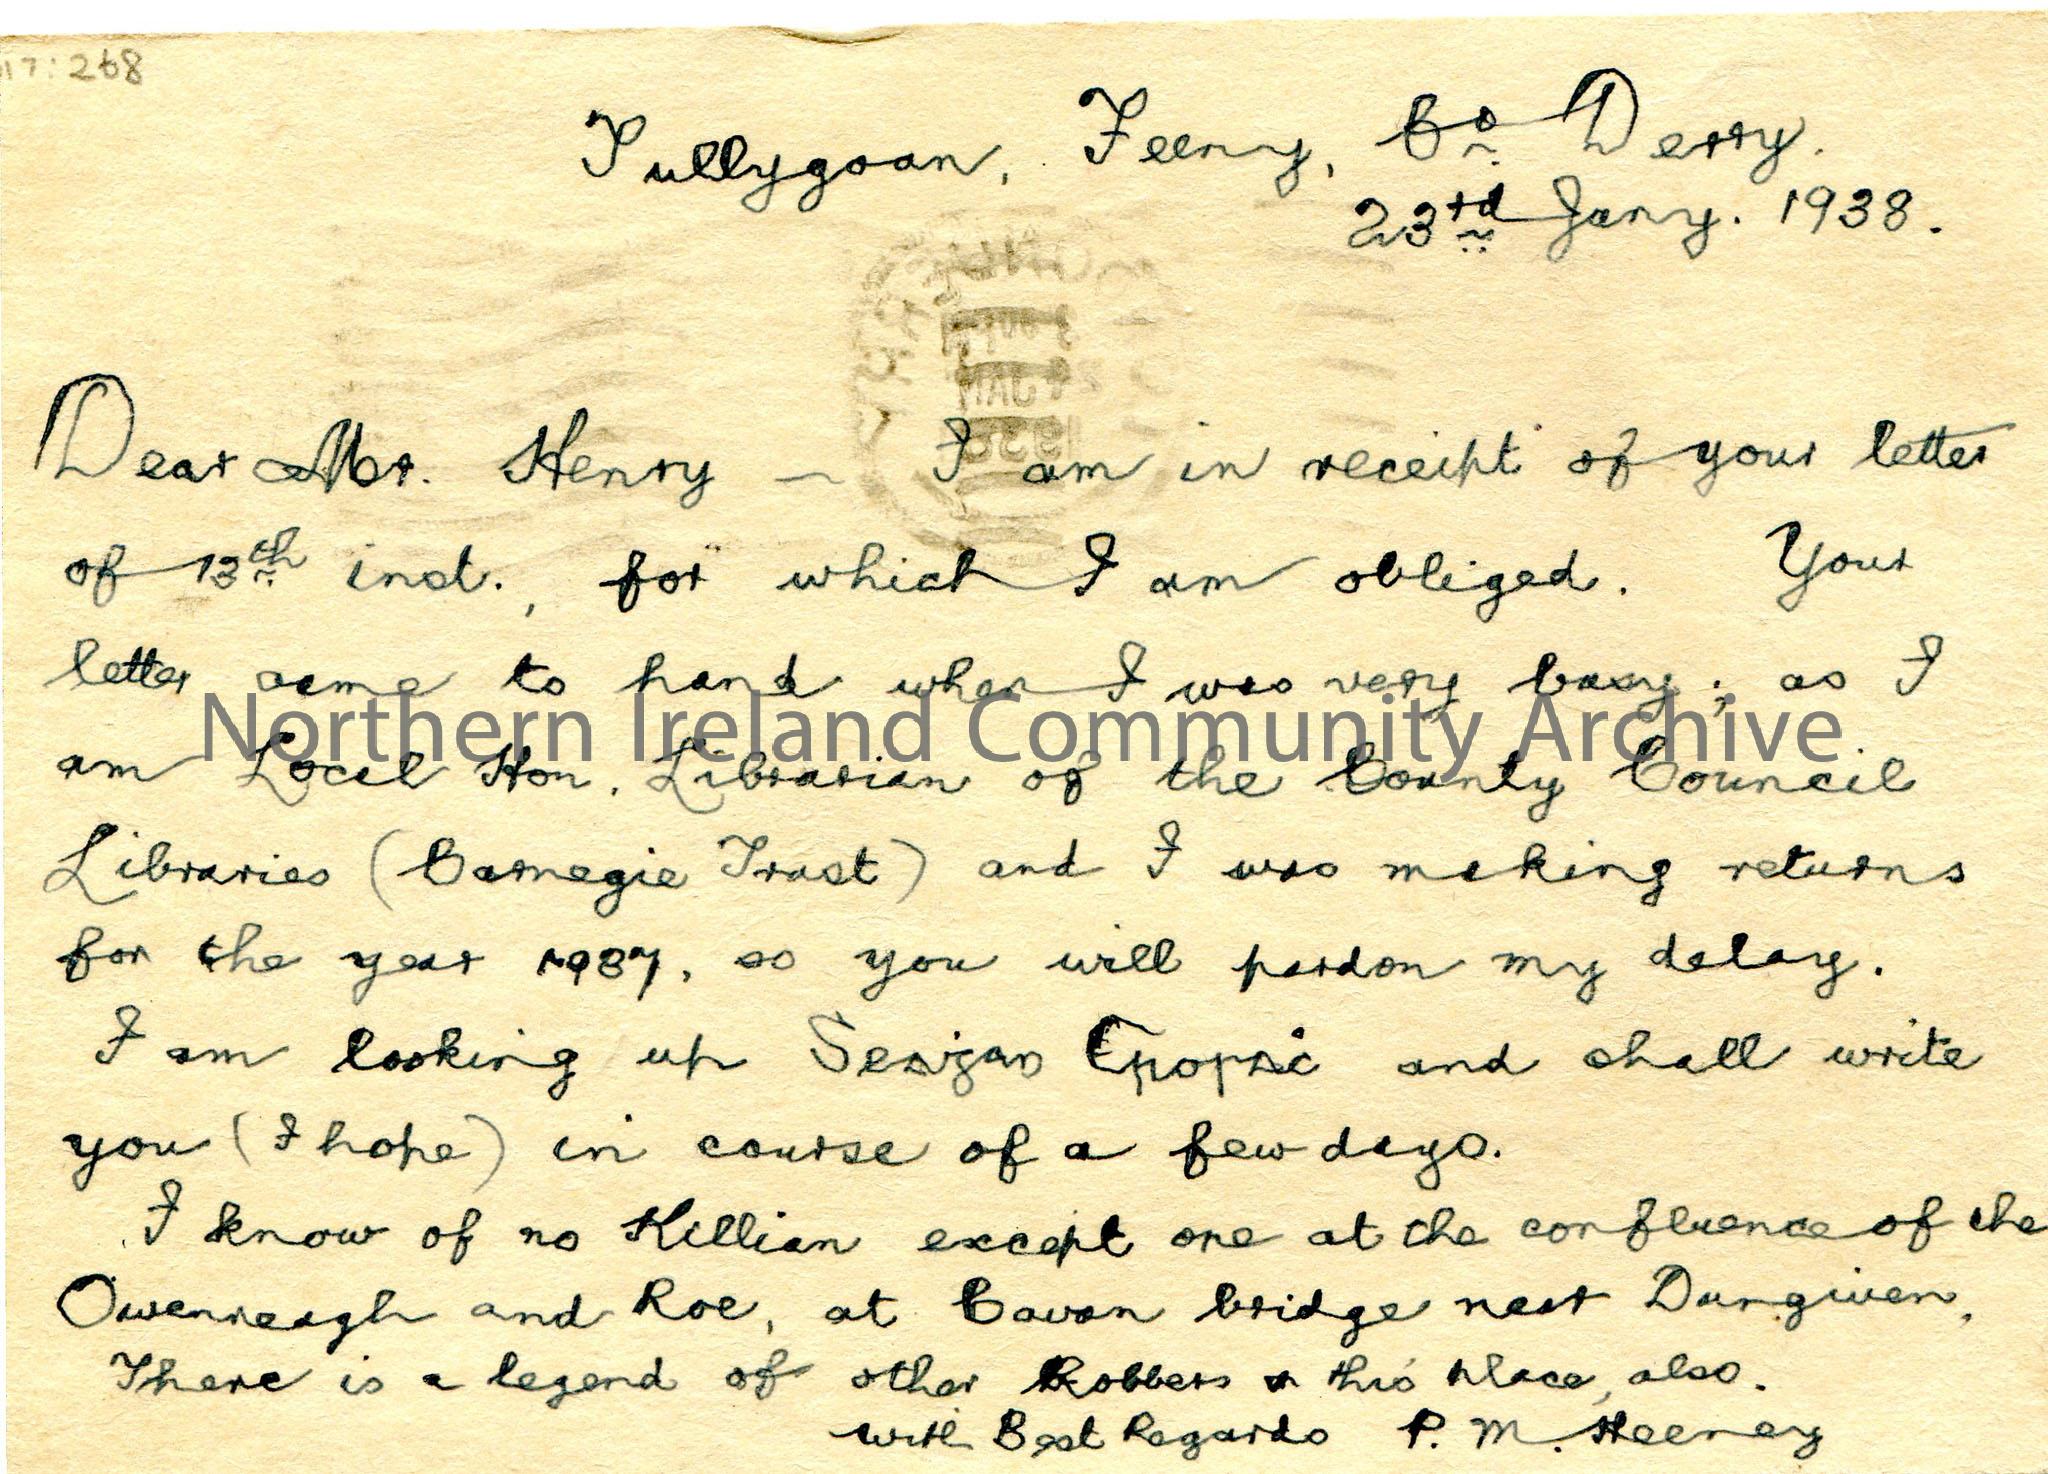 17:268
Tullygoan, Feeny, Co Derry.
23rd Jany. 1938.
Dear Mr. Henry — I am in receipt of your letter
of 13th inst., for which I am obliged. Your
letter came to hand when I was very busy; as I
Northern Ireland Community Archive
am Local Hon. Librarian of the County Council
Libraries (Carnegie Trust) and I was making returns
for the year 1937, so you will pardon my delay.
I am looking up and shall write
you (I hope) in course of a few days.
I know of no Killian except one at the confluence of the
Owenreagh and Roe, at Cavan bridge near Dungiven.
There is a legend of other Robbers this place, also.
with Best Regards P. M. Heeney